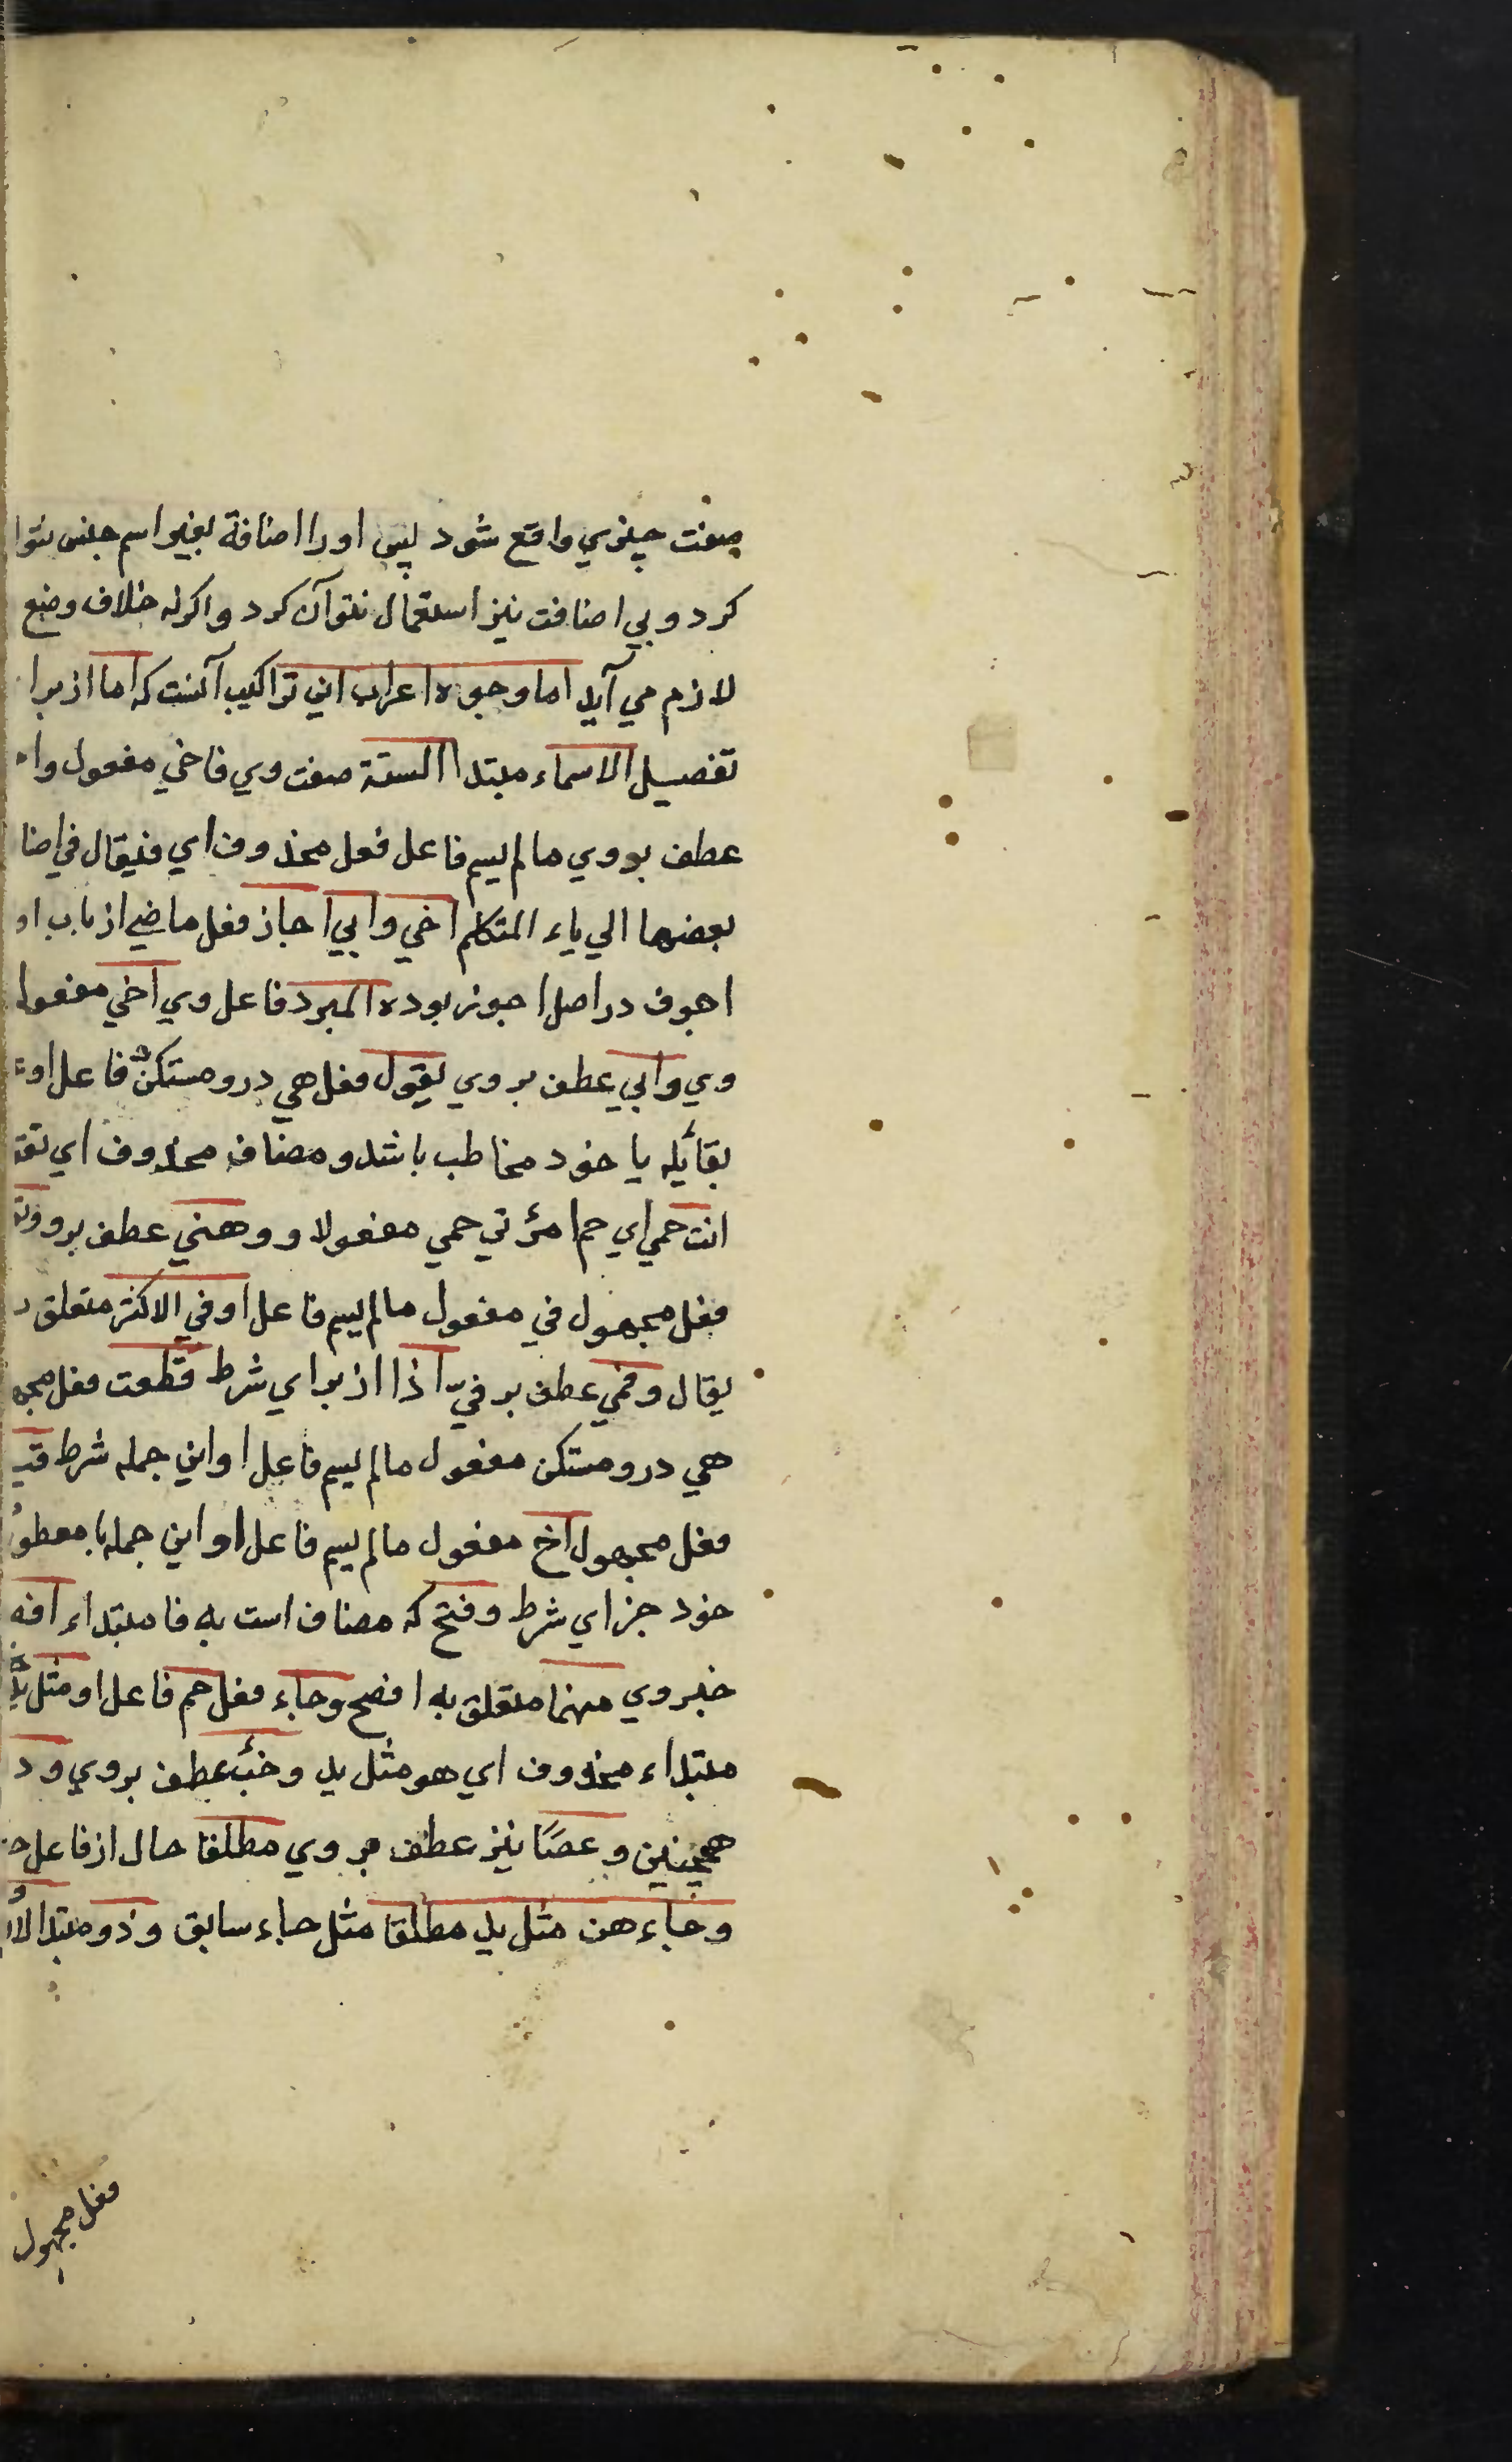 صفت چيزي واقع شود پس او را اضافة بغير اسم جنس نتوا
كرد و بي اضافت نيز استعمال نتوان كرد و اكرنه خلاف وضع
لازم مي آيد اما وجوه اعراب اين تراكيب آنست كه اما از برا
تفصيل الاسماء مبتدا الستة صفت وي فاخي مفعول وا
عطف بر وي مالم يسم فاعل فعل محذوف اي فيقال في اضا
بعضها الي ياء المتكلم اخي و ابي اجاز فعل ماضي از باب ا
اجوف در اصل اجوز بوده المبرد فاعل وي اخي مفعول
وي و ابي عطف بر وي يقول فعل هي درو مستكن فاعل او
بقائله يا خود مخاطب باشد و مضاف محذوف اي تق
انت حمي اي حم امرئتي حمي مفعول او و هني عطف برو و
فعل مجهول في مفعول مالم يسم فاعل او في الاكثر متعلق
يقال و فمي عطف بر في اذا از براي شرط قطعت فعل مجه
هي درو مستكن مفعول مالم يسم فاعل او اين جمله شرط قيـ
فعل مجهول اخ مفعول مالم يسم فاعل او اين جمله با معطو
خود جزاي شرط و فتح كه مضاف است به فا مبتداء افـ
خبر وي منهما متعلق به افصح و جاء فعل حم فاعل او مثل يد
مبتداء محذوف اي هو مثل يد و خبء عطف بر وي و د
همچنين و عصًا نيز عطف بر وي مطلقا حال از فاعل
و جاء هن مثل يد مطلقا مثل جاء سابق و ذو مبتدا لا
فعل مجهول